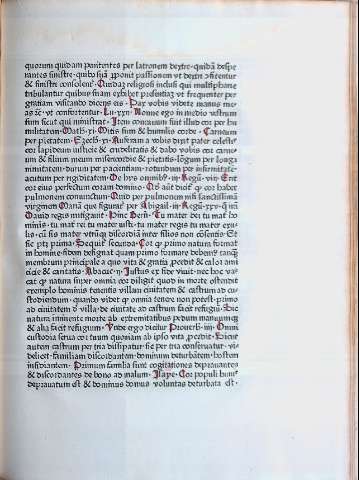 quorum quidam penitentes per latronem dextre · quidã despe
rantes sinistre · quibꝰ suã ꝓponit passionem vt dextri ꝯfitentur
& sinistre consolent̃ · Quidaʒ religiosi inclusi qui multiphane
tribulantur quibus suam exhibet presentiaʒ vt frequenter per
gratiam visitando dicens eis · Pax vobis videte manus me
as &c̃ · vt confortentur · Lu · xxii · Nonne ego in medio vestrum
sum sicut qui ministrat · Item concauum sunt illud cor per hu
militatem · Math · xi · Mitis sum & humilis corde · Carneum
per pietatem · Ezech · xi · Auferam a vobis dicit pater celestis
cor lapideum iusticie & crudelitatis & dabo vobis cor carne
um & filium meum misericordie & pietatis · lõgum per longa
nimitatem · durum per pacientiam · rotundum per infirmitatem
acutum per rigiditatem · De hys omnibꝰ · iii · Regũ · viii · Erit
cor eius perfectum coram domino · Os aũt dicit̃ ꝙ cor habet
pulmonem coniunctum · Quid per pulmonem nisi sanctissima
virginem Mariã que figurat̃ per Abigail · i · Regũ · xxv · q̃ irã
Dauid regis mitigauit · Hinc Bern · Tu mater dei tu mater ho
minis · tu mater rei tu mater iusti · tu mater regis tu mater exu
lis · cũ sis mater vtriusq̃ discordiã inter filios non cõsentis · Et
sic ptʒ prima · Sequit̃ secunda · Cor ꝙ primo natura format
in homine · fidem designat quam primo formare debemꝰ tanq̃
membrum principale a quo vita & gratia ꝓcedit & calor ami
cicie & caritatis · Abacuc · ii · Iustus ex fide viuit · nec hoc va
cat ꝙ natura super omnia cor diligit quod in morte ostendit
exemplo hominis tenentis villam ciuitatem & castrum ad cu
stodiendum · quando videt ꝙ omnia tenere non potest · primo
ad ciuitatem de villa · de ciuitate ad castrum facit refugiũ · Sic
natura iminente morte ab extremitatibus pedum manuumq̃
& alia facit refugium · Vnde ergo dicitur Prouerb · iiii · Omni
custodia serua cor tuum quoniam ab ipso vita ꝓcedit · Sicut
autem castrum per tria dissipatur · sic per tria conseruatur · vi ·
delicet · familiam discordantem · dominum deturbatem · hostem
insidiantem · Primum familia sunt cogitationes deprauantes
& discordantes de bono ad malum · Isaye · Cor populi huiꝰ
deprauatum est & dominus domus voluntas deturbata est ·